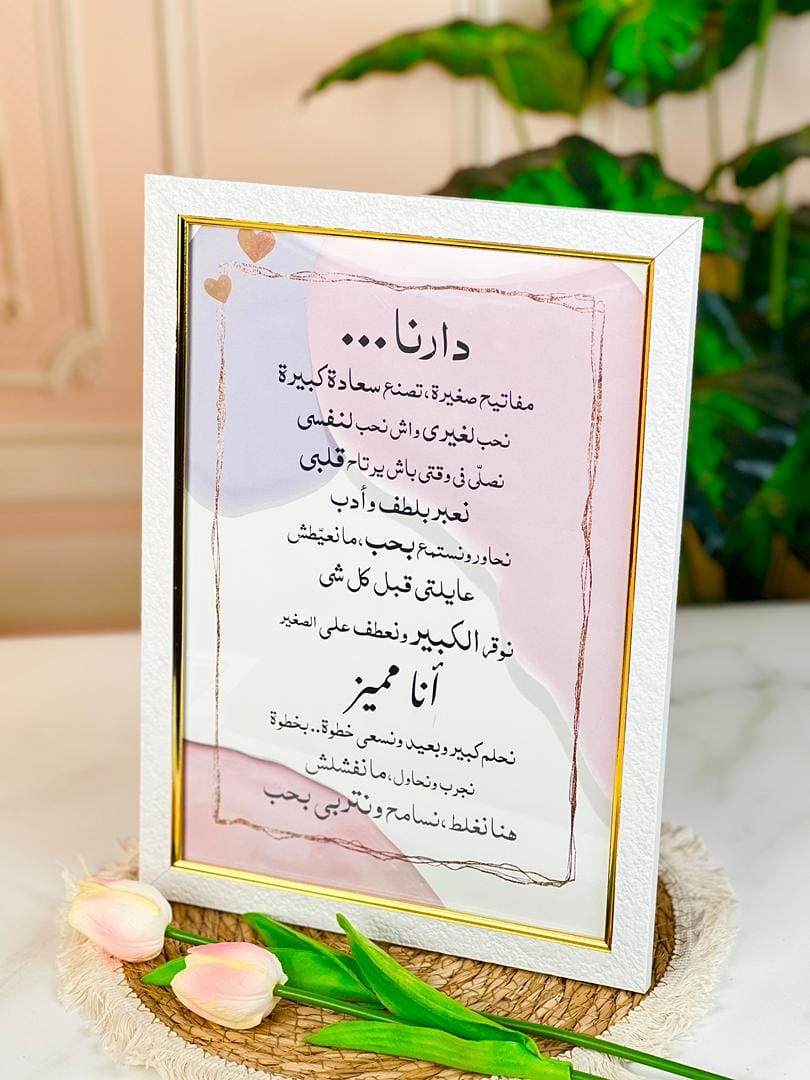 دارنا...
مفاتيح صغيرة، تصنع سعادة كبيرة
نحب لغيرى واش نحب لنفسى
نصلّى فى وقتى باش يرتاح قلبى
نعبر بلطف وأدب
نحاور ونستمع بحب، ما نعيّطش
عايلتى قبل كل شى
نوقر الكبير ونعطف على الصغير
أنا مميز
نحلم كبير وبعيد ونسعى خطوة.. بخطوة
نجرب ونحاول، ما نفشلش
هنا نغلط، نسامح ونتربى بحب